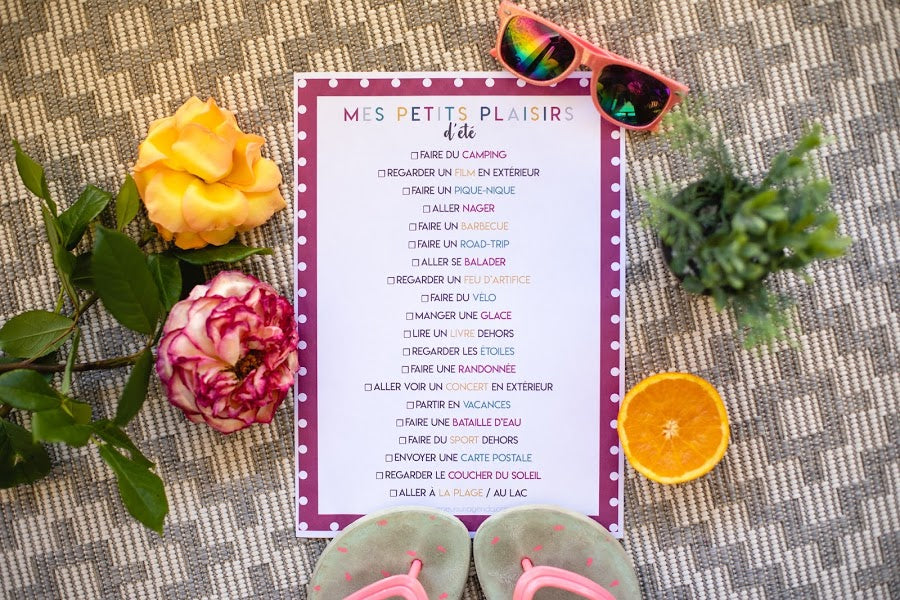 MES PETITS PLAISIRS
d'été
FAIRE DU CAMPING
REGARDER UN FILM EN EXTÉRIEUR
FAIRE UN PIQUE-NIQUE
ALLER NAGER
FAIRE UN BARBECUE
FAIRE UN ROAD-TRIP
ALLER SE BALADER
REGARDER UN FEU D'ARTIFICE
FAIRE DU VÉLO
MANGER UNE GLACE
LIRE UN LIVRE DEHORS
REGARDER LES ÉTOILES
FAIRE UNE RANDONNÉE
ALLER VOIR UN CONCERT EN EXTÉRIEUR
PARTIR EN VACANCES
FAIRE UNE BATAILLE D'EAU
FAIRE DU SPORT DEHORS
ENVOYER UNE CARTE POSTALE
REGARDER LE COUCHER DU SOLEIL
ALLER À LA PLAGE / AU LAC